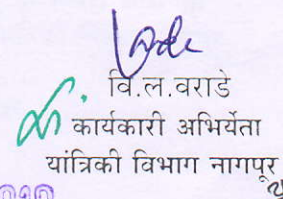 वि.ल.वराडे
कार्यकारी अभियेता
यांत्रिकी विभाग नागपूर